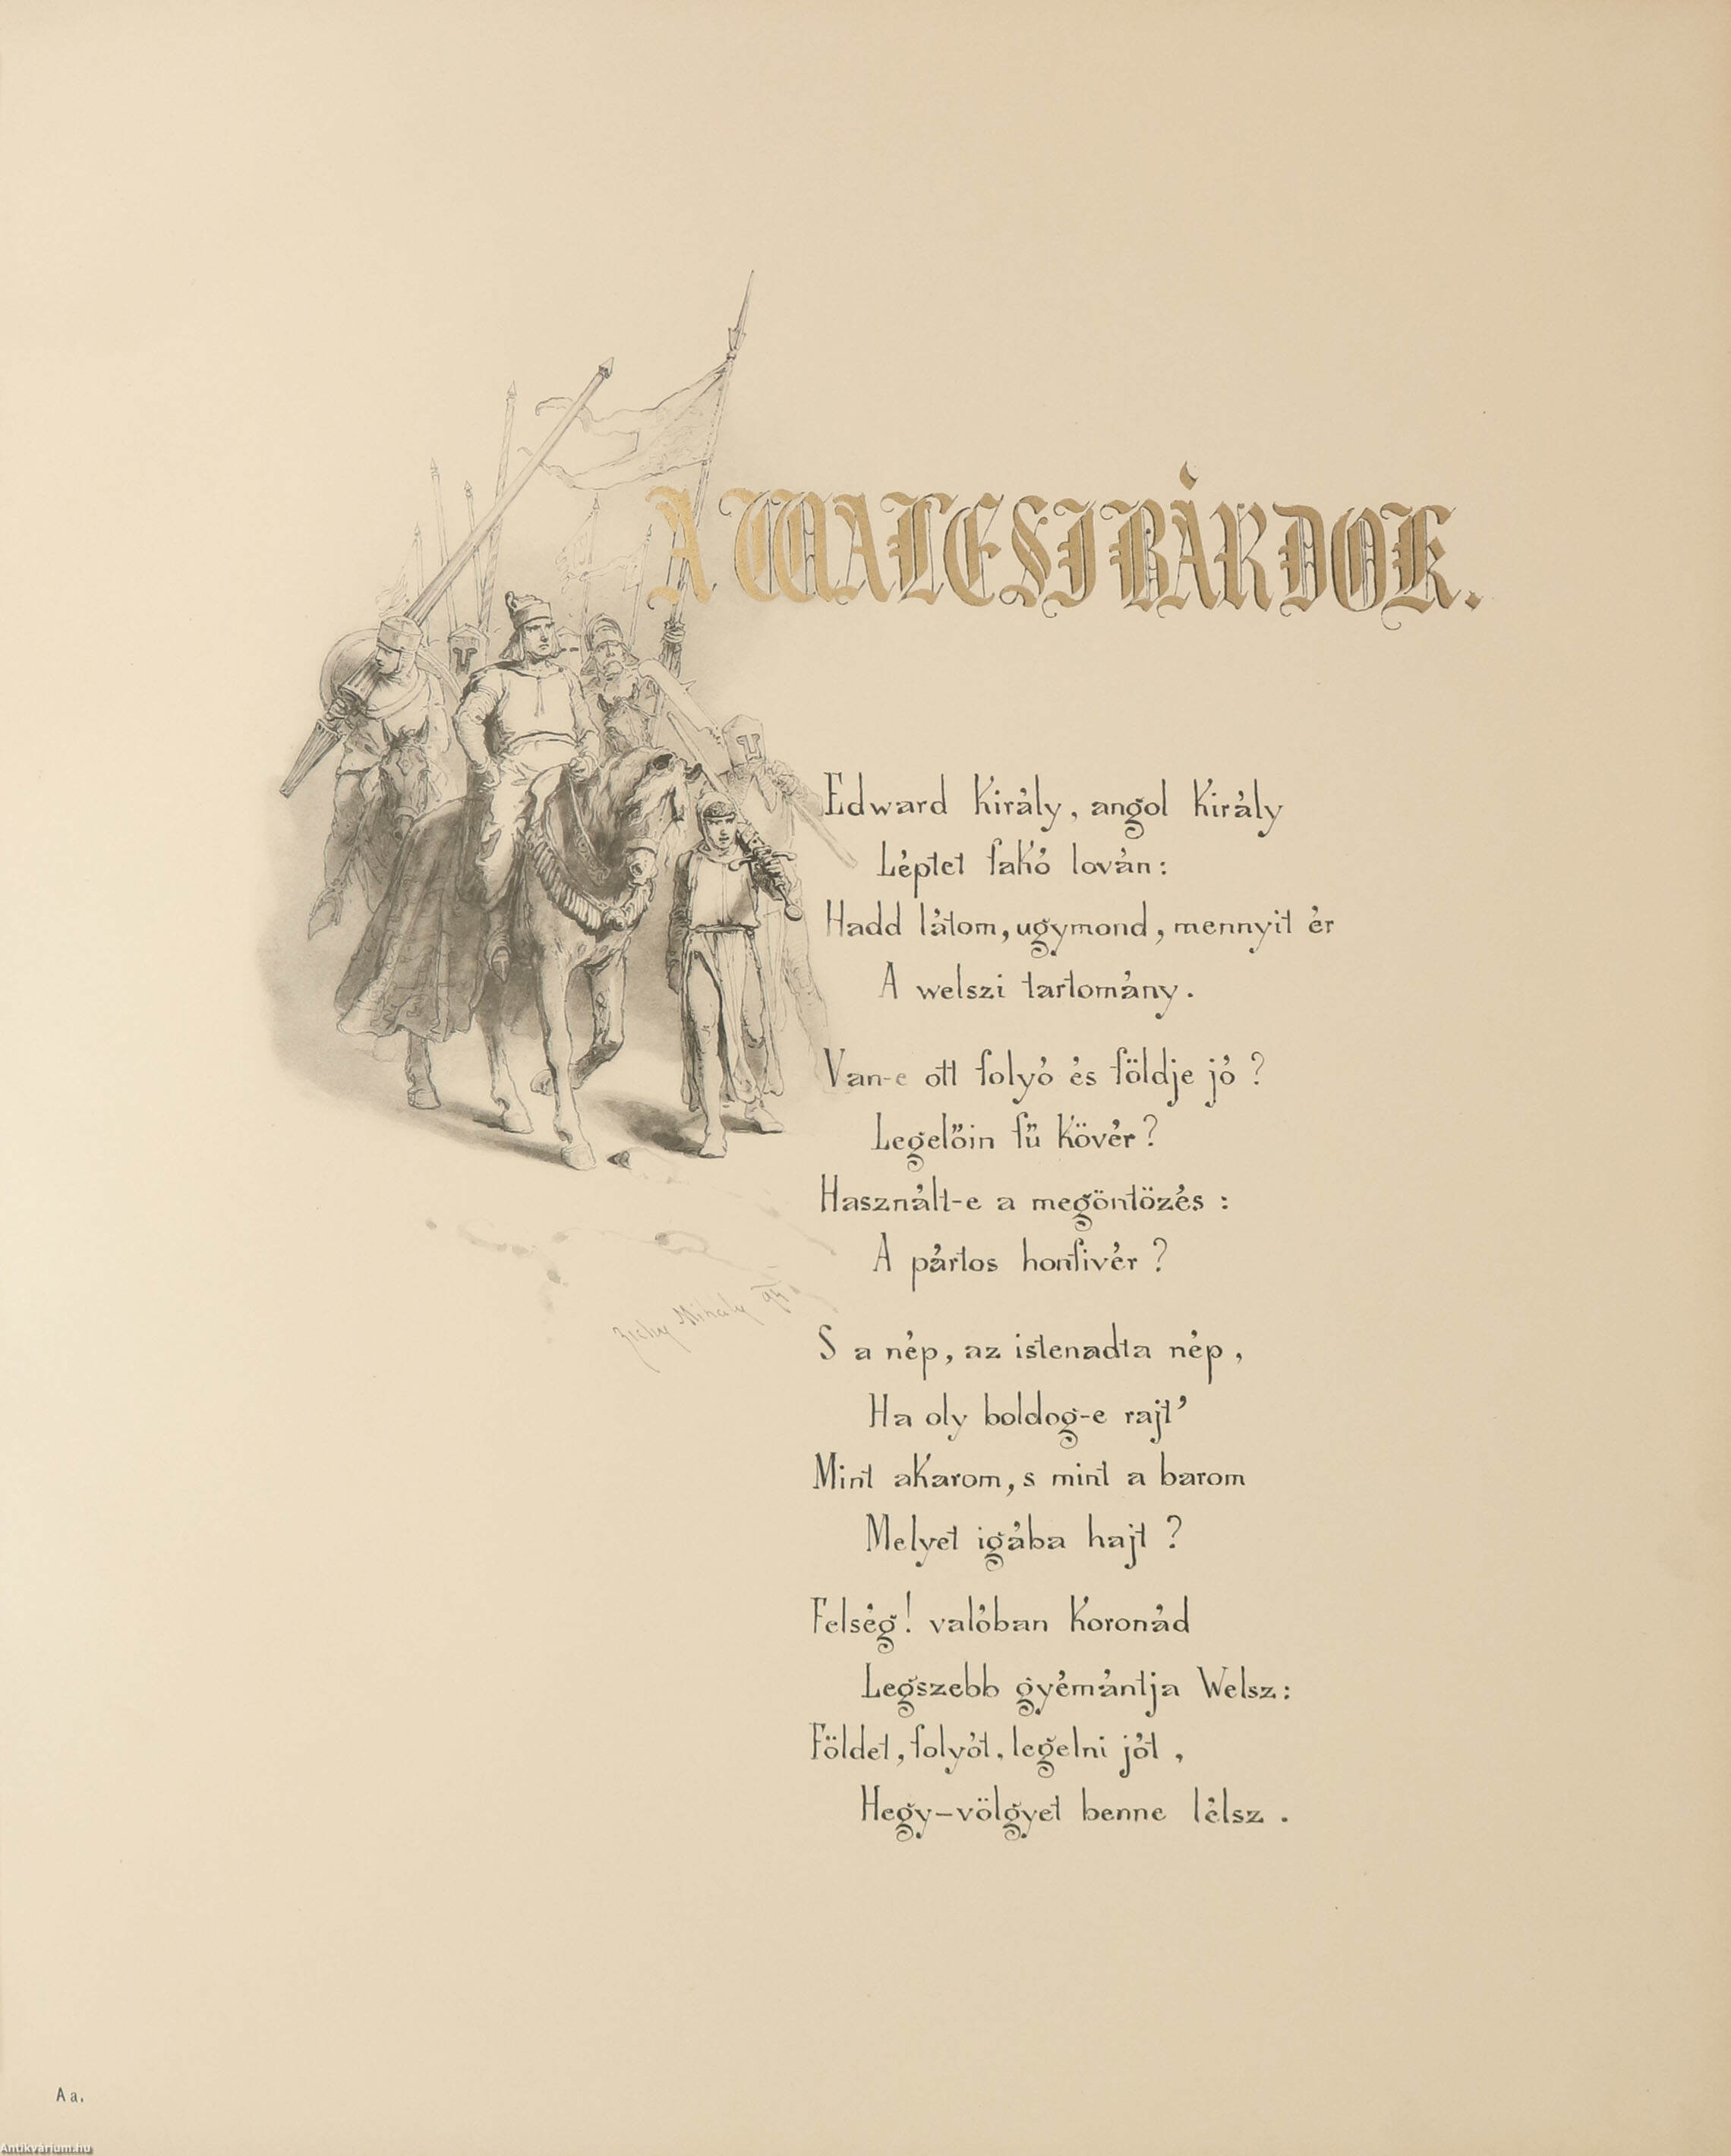 A WALESI BÁRDOK.
Edward Király, angol Király
Léptet fakó lován:
Hadd látom, ugymond, mennyit ér
A welszi tartomány.
Van-e ott folyó és földje jó?
Legelőin fű kövér?
Használt-e a megöntözés:
A pártos honfivér?
S a nép, az istenadta nép,
Ha oly boldog-e rajt'
Mint akarom, s mint a barom
Melyet igába hajt?
Felség! valóban Koronád
Legszebb gyémántja Welsz:
Földet, folyót, legelni jót,
Hegy-völgyet benne lélsz.
Zichy Mihály
Aa.
Antikvárium.hu